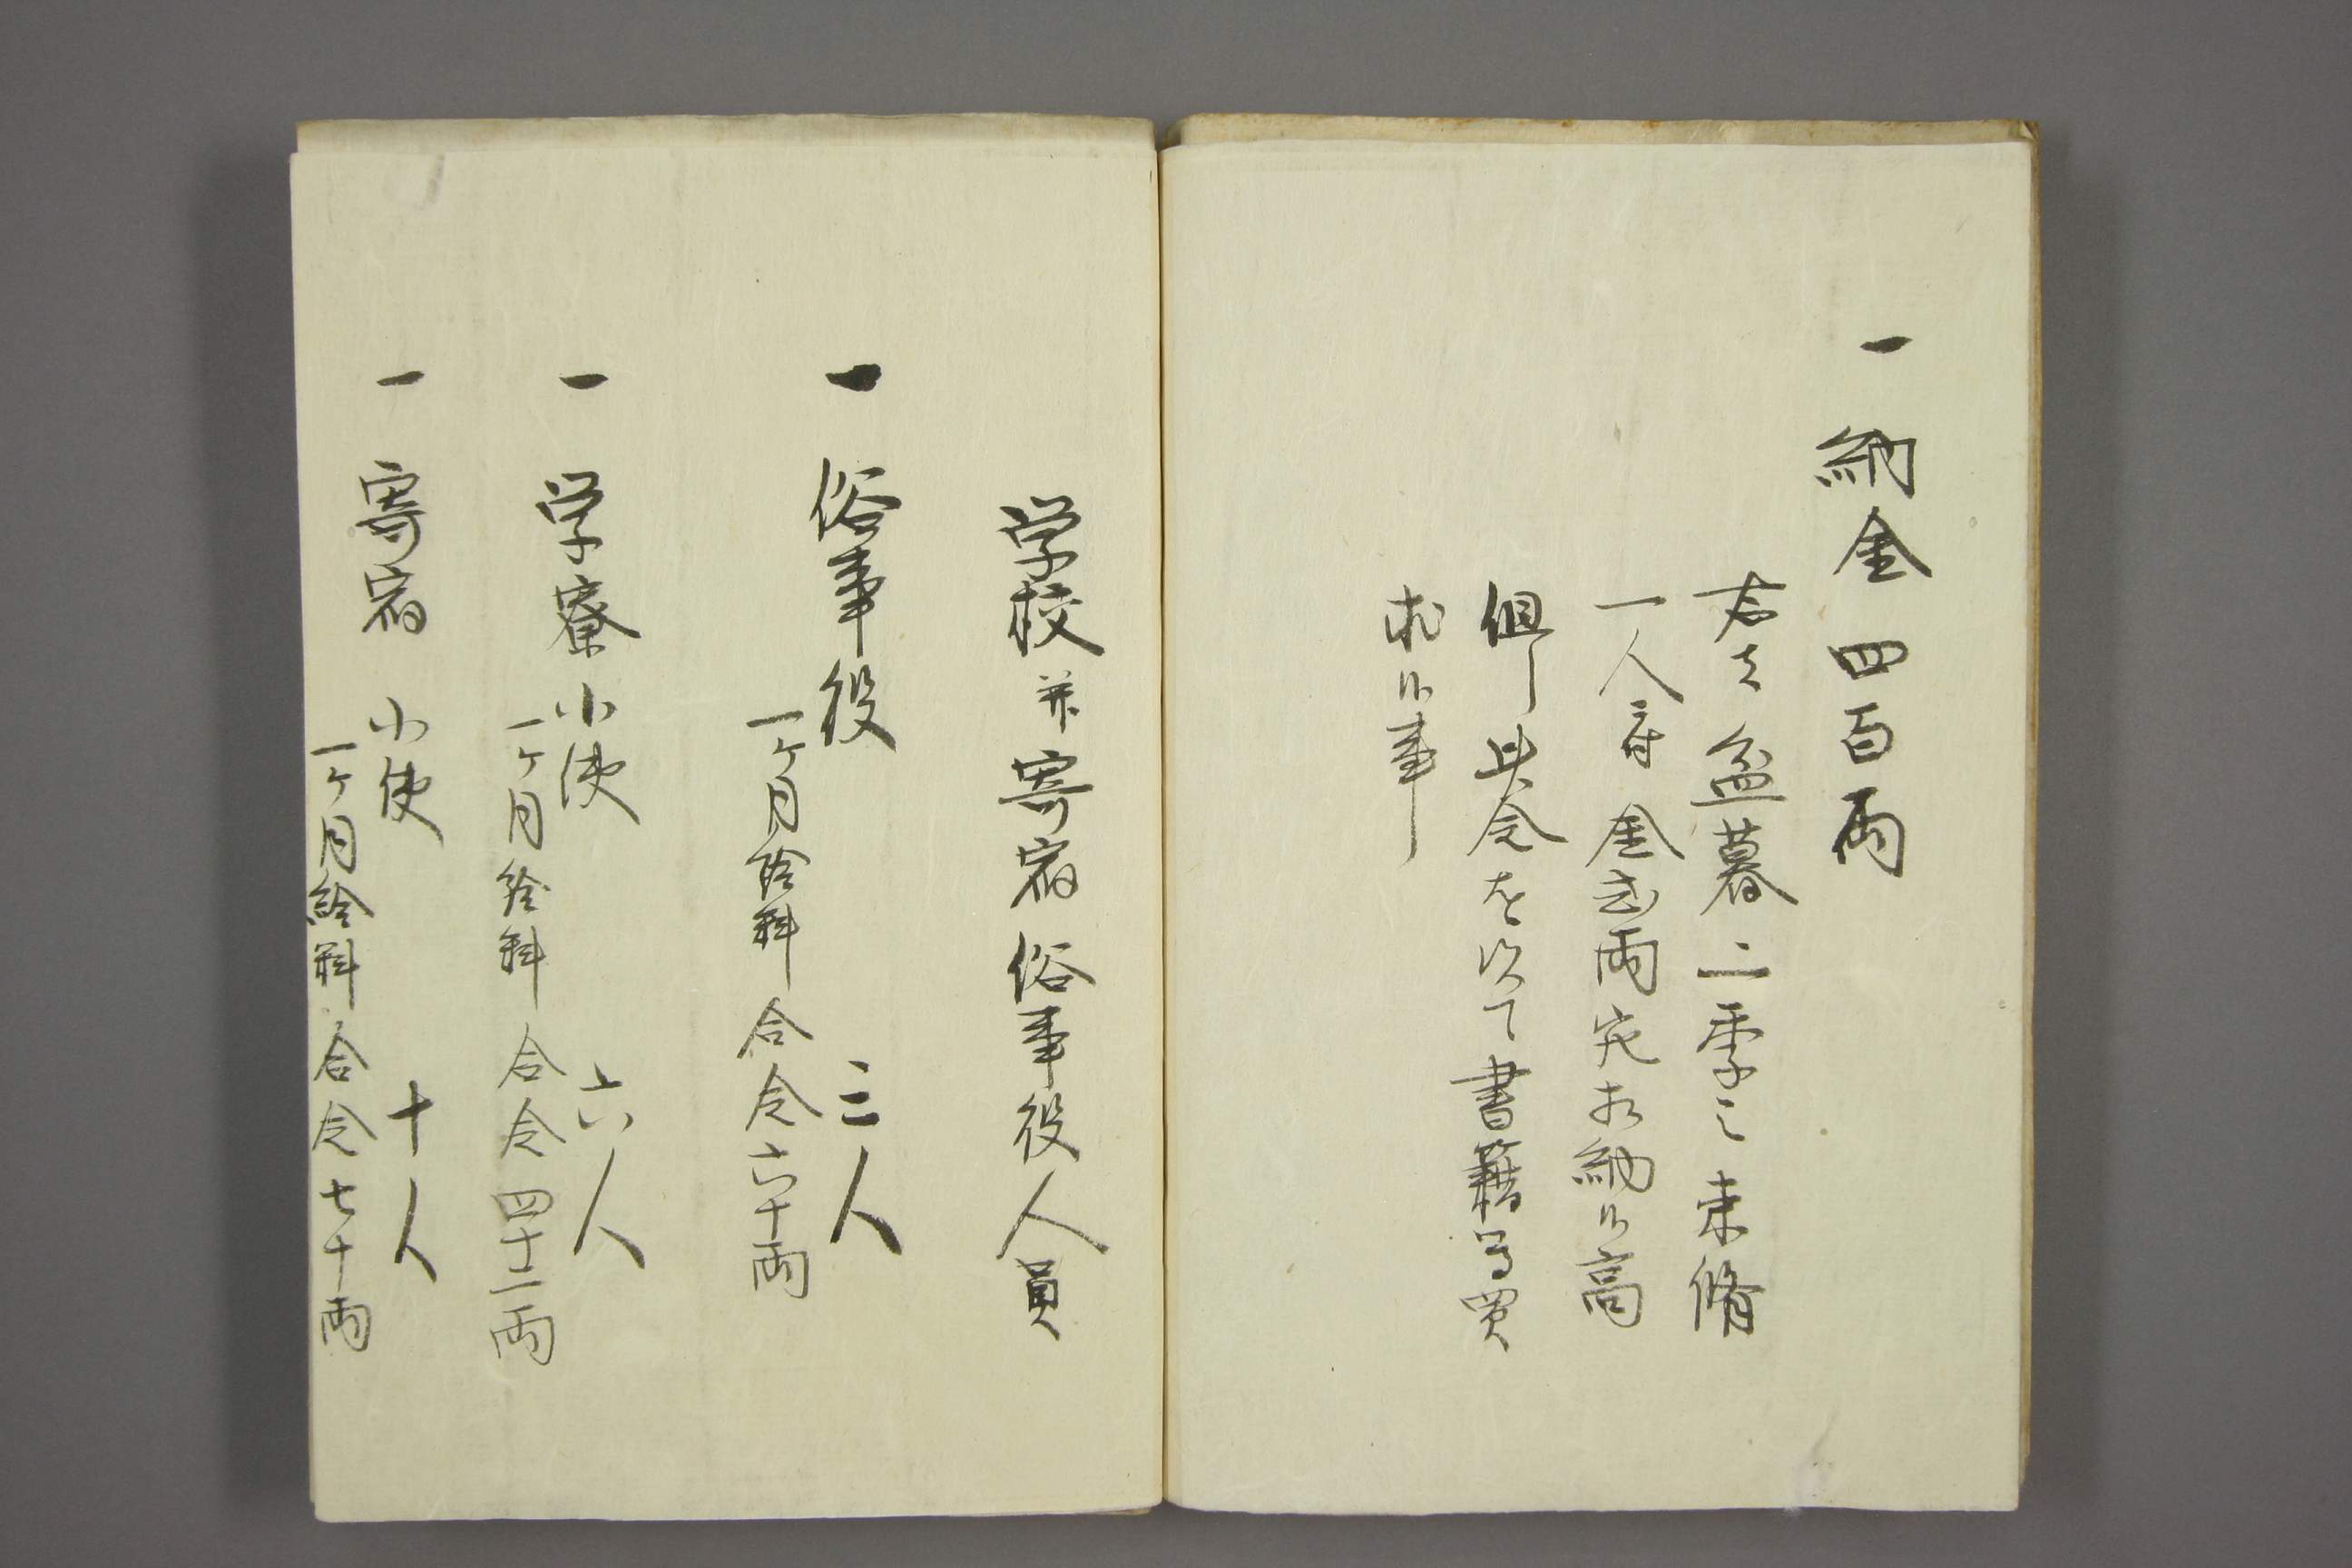 一 納金 四百両
右者盆暮二季之束脩
一人ニ付金弐両宛相納候高
但し此金を以て書籍等買
求候事
学校并寄宿俗事役人員
一 俗事役 三人
一ケ月給料 合金六十両
一 学寮小使 六人
一ケ月給料 合金四十二両
一 寄宿 小使 十人
一ケ月給料 合金七十両